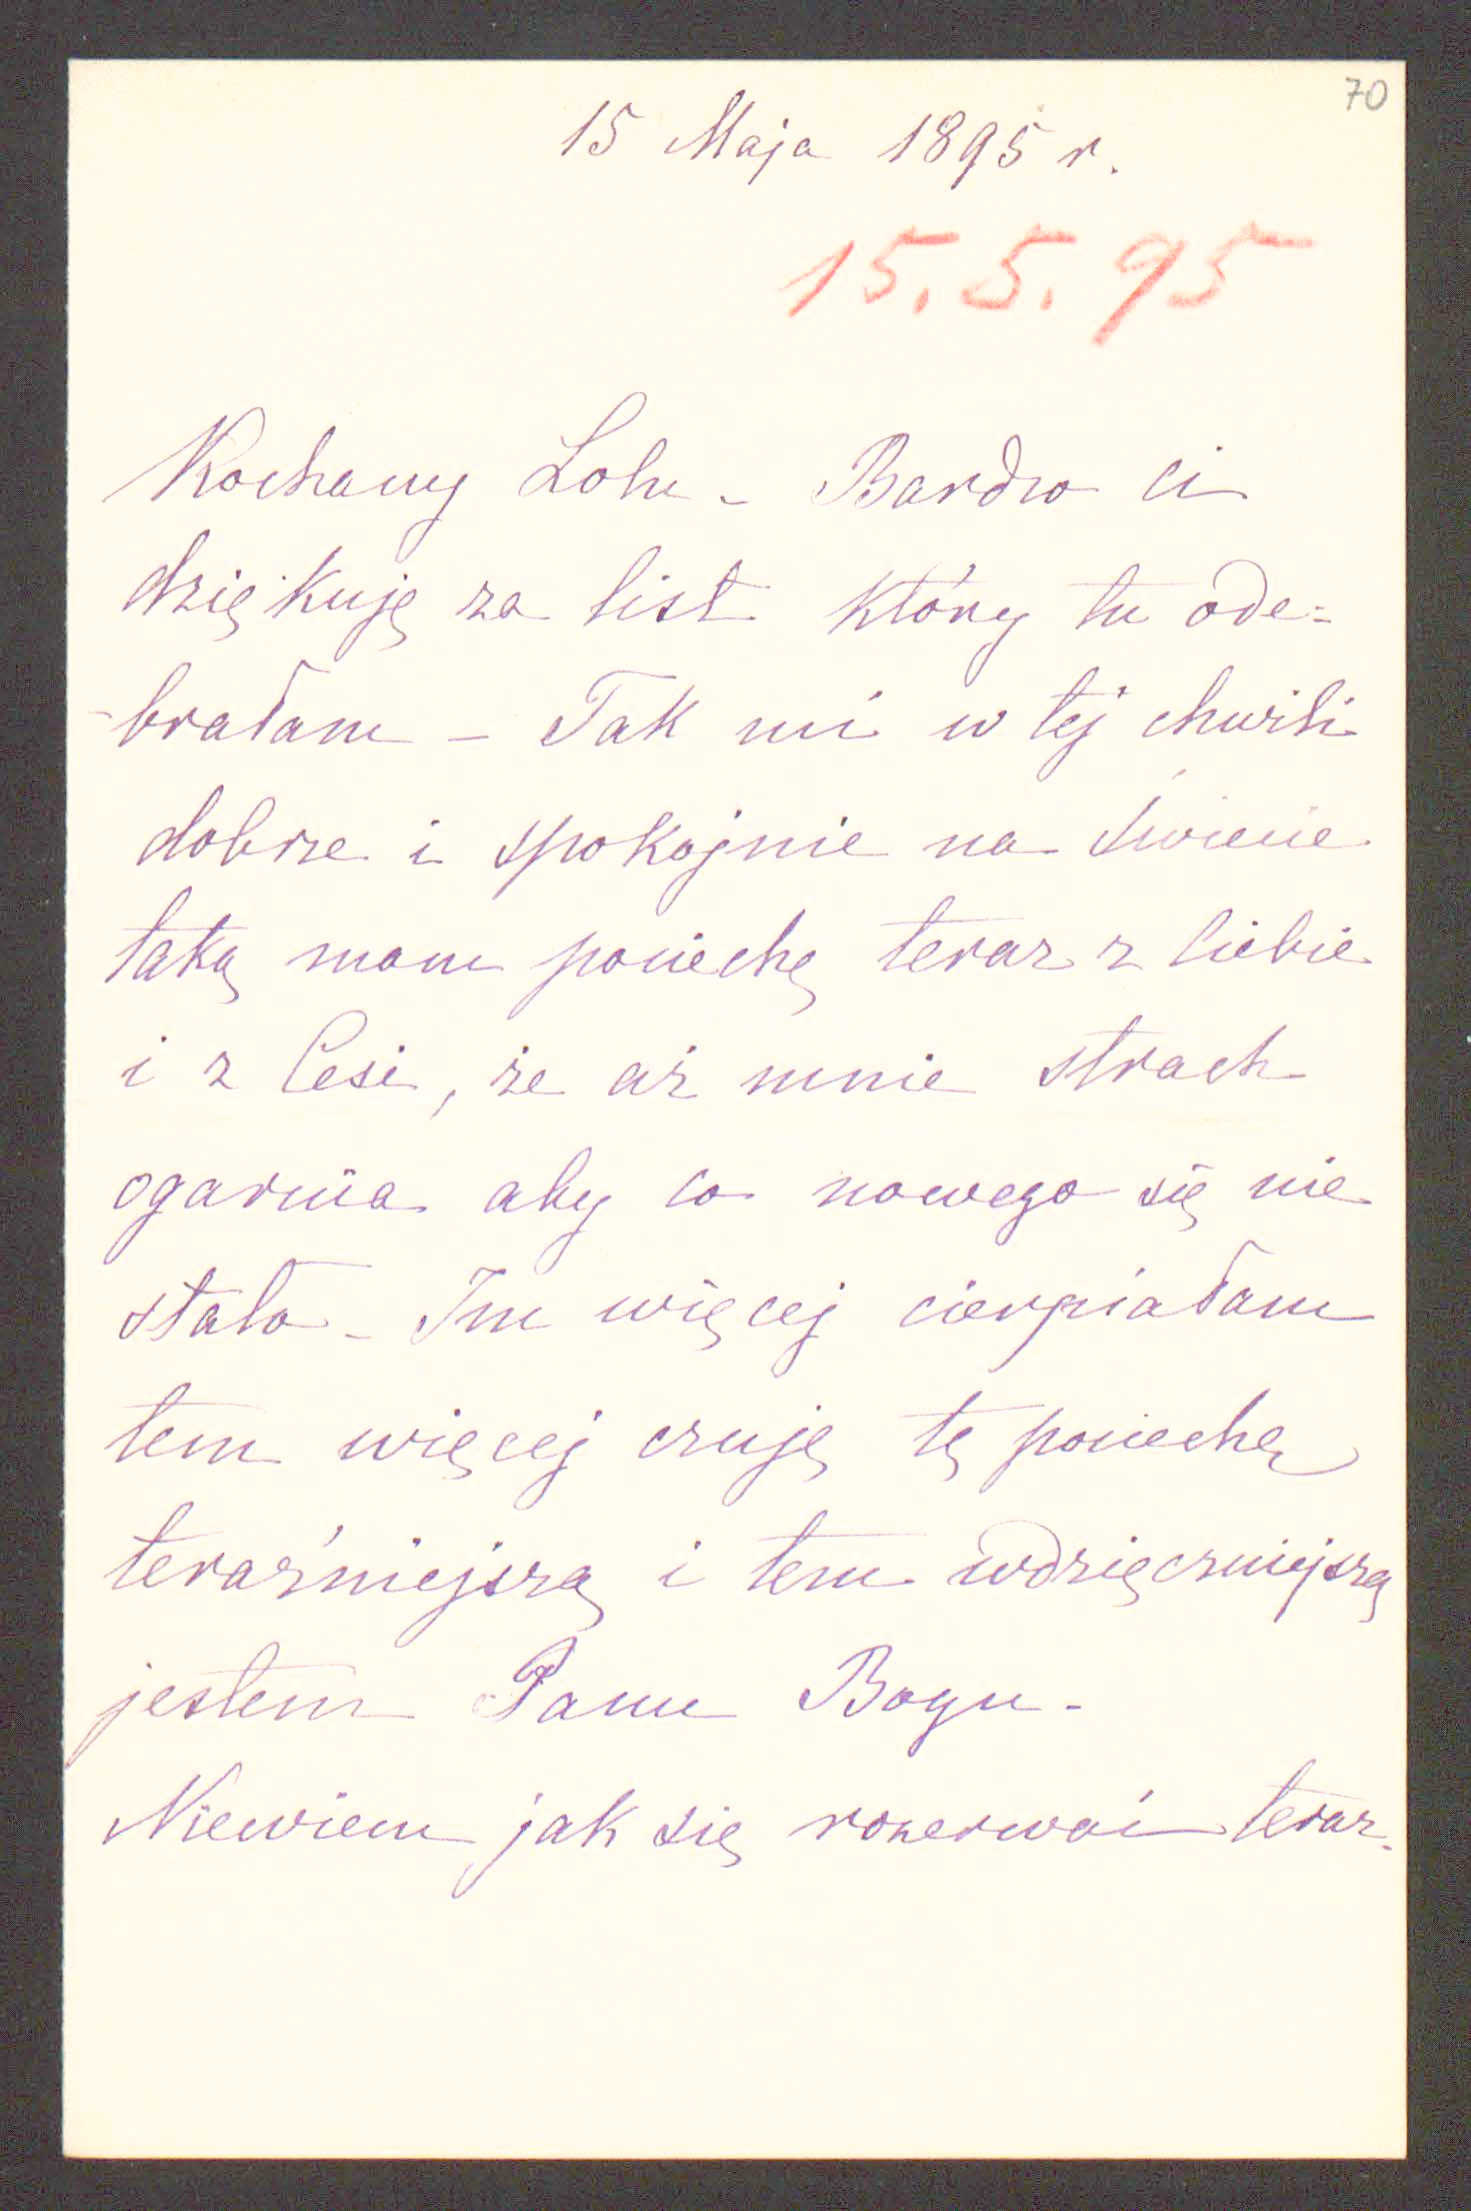 70
15 Maja 1895 r.
15.5.95
Kochany Lolu - Bardzo ci
dziękuję za list który tu ode=
-brałam - Tak mi w tej chwili
dobrze i spokojnie na świecie
taką mam pociechę teraz z Ciebie
i z Cesi, że aż mnie strach
ogarnia aby co nowego się nie
stało - Im więcej cierpiałam
tem więcej czuję tę pociechę
teraźniejszą i tem wdzięczniejszą
jestem Panu Bogu -
Niewiem jak się rozerwać teraz -